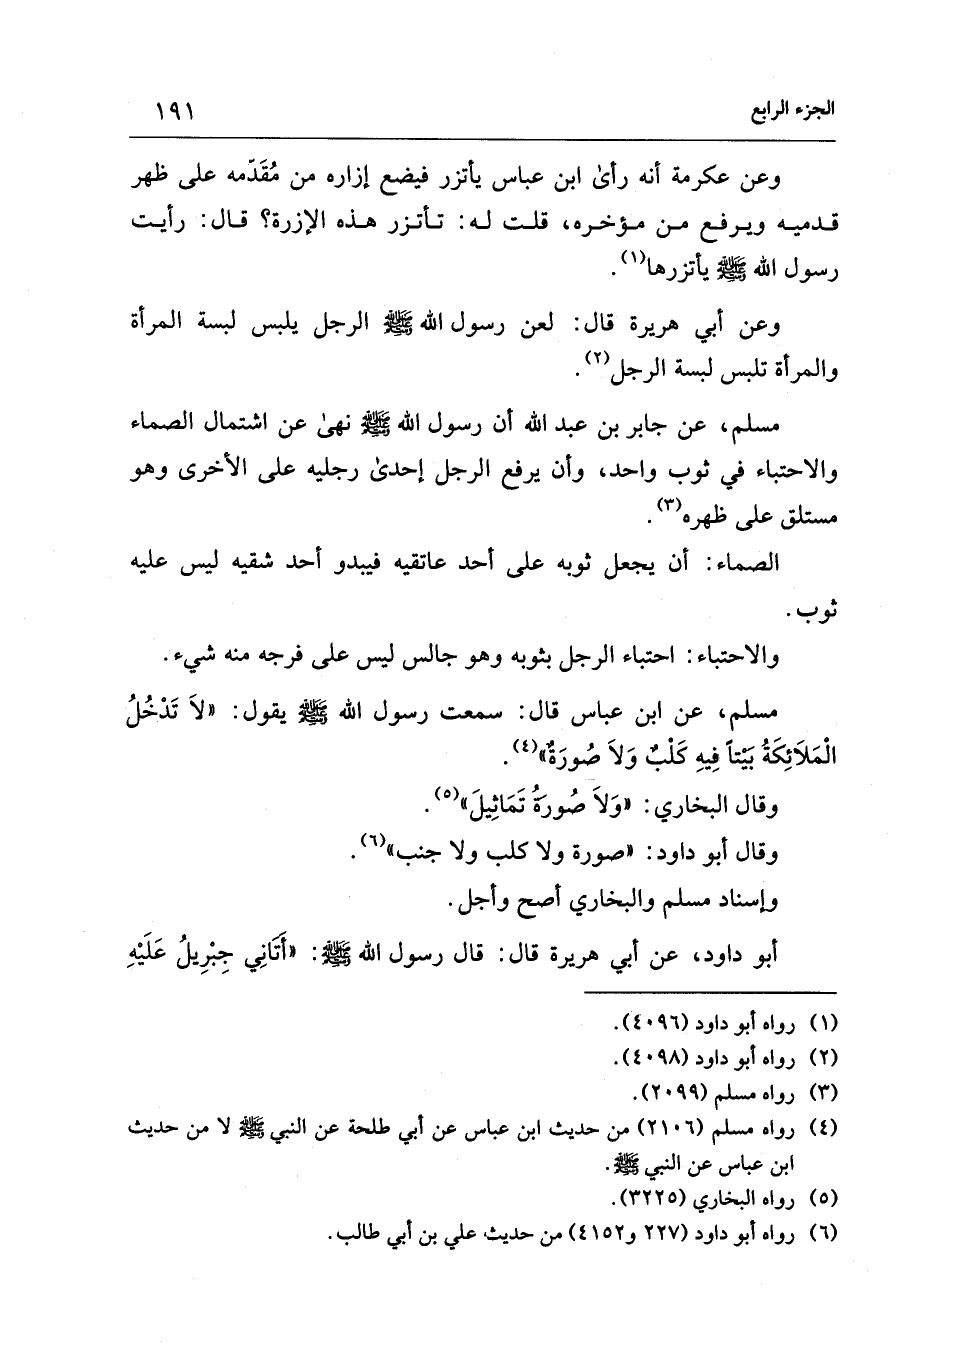 الجزء الرابع ١٩١
وعن عكرمة أنه رأىٰ ابن عباس يأتزر فيضع إزاره من مُقَدّمه على ظهر
قدميه ويرفع من مؤخره، قلت له: تأتزر هذه الإزرة؟ قال: رأيت
رسول الله ﷺ يأتزرها(١).
وعن أبي هريرة قال: لعن رسول الله ﷺ الرجل يلبس لبسة المرأة
والمرأة تلبس لبسة الرجل(٢).
مسلم، عن جابر بن عبد الله أن رسول الله ﷺ نهىٰ عن اشتمال الصماء
والاحتباء في ثوب واحد، وأن يرفع الرجل إحدىٰ رجليه على الأخرى وهو
مستلق على ظهره(٣).
الصماء: أن يجعل ثوبه على أحد عاتقيه فيبدو أحد شقيه ليس عليه
ثوب.
والاحتباء: احتباء الرجل بثوبه وهو جالس ليس على فرجه منه شيء.
مسلم، عن ابن عباس قال: سمعت رسول الله ﷺ يقول: «لاَ تَدْخُلُ
الْمَلاَئِكَةُ بَيْتاً فِيهِ كَلْبٌ وَلاَ صُورَةٌ»(٤).
وقال البخاري: «وَلاَ صُورَةُ تَمَاثِيلَ»(٥).
وقال أبو داود: «صورة ولا كلب ولا جنب»(٦).
وإسناد مسلم والبخاري أصح وأجل.
أبو داود، عن أبي هريرة قال: قال رسول الله ﷺ: «أَتَانِي جِبْرِيلُ عَلَيْهِ
(١) رواه أبو داود (٤٠٩٦).
(٢) رواه أبو داود (٤٠٩٨).
(٣) رواه مسلم (٢٠٩٩).
(٤) رواه مسلم (٢١٠٦) من حديث ابن عباس عن أبي طلحة عن النبي ﷺ لا من حديث
ابن عباس عن النبي ﷺ.
(٥) رواه البخاري (٣٢٢٥).
(٦) رواه أبو داود (٢٢٧ و٤١٥٢) من حديث علي بن أبي طالب.